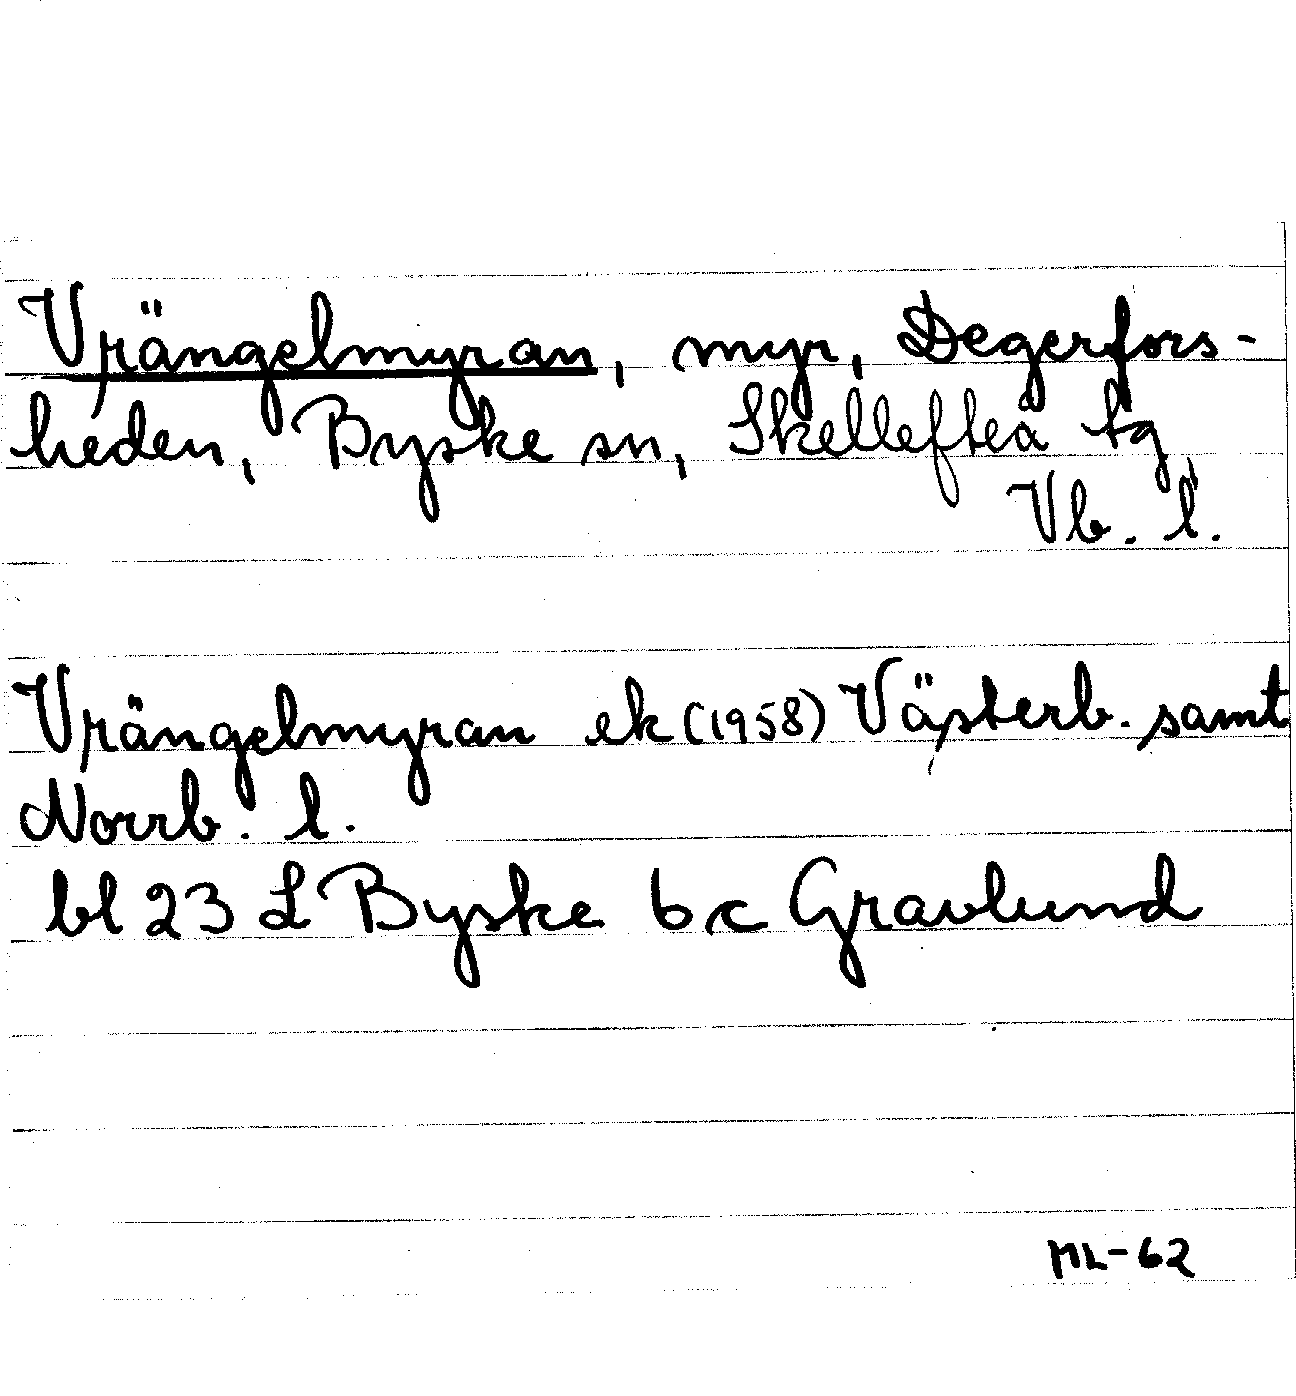 Vrängelmyran, myr, Degerfors-
heden, Byske sn, Skellefteå tg
Vb. l.
Vrängelmyran ek (1958) Västerb. samt
Norrb. l.
bl 23 L Byske bc Gravlund
ML-62